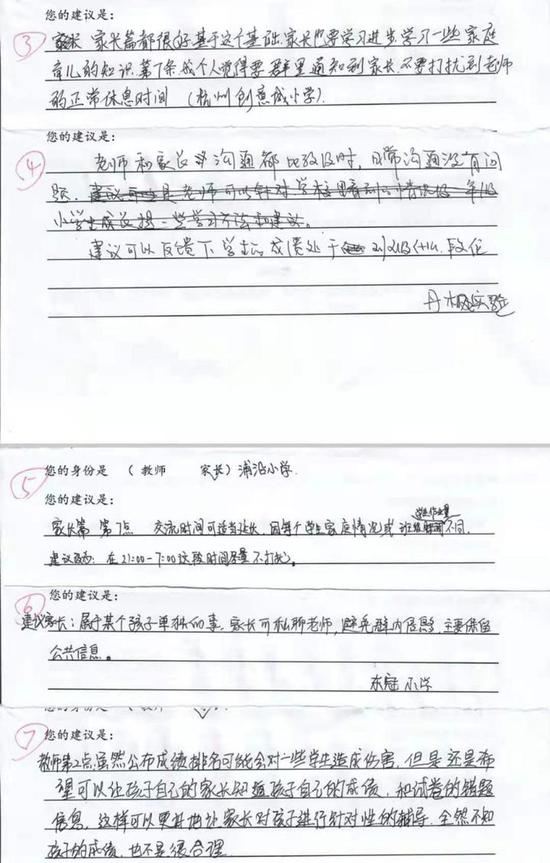 您的建议是:
③ 家长篇都很好.基于这个基础.家长也要学习进步学习一些家庭
育儿的知识.第7条 我个人觉得要群里通知到家长.不要打扰到老师
的正常休息时间 (杭州创意城小学)
您的建议是:
④ 老师和家长沟通都比较及时,日常沟通没有问
题.建议 是老师可以针对学校里看到的情况给一年级
小学生家长提一些学习方法和建议。
建议可以反馈下学生的成绩处于 段位
丹枫实验
⑤ 您的身份是 ( 教师 家长) 浦沿小学.
您的建议是:
家长第 第7点 交流时间可适当延长,因每个学生家庭情况或 班级 不同.
建议 在21:00-7:00这段时间尽量不打扰。
您的建议是:
⑥ 建议家长:属于某个孩子单独的事,家长可私聊老师,避免群内 主要保留
公共信息。
东冠小学
您的身份是 ( 教师
⑦ 您的建议是:
教师第2点,虽然公布成绩排名可能会对一些学生造成伤害,但是还是希
望可以让孩子自己的家长知道孩子自己的成绩,和试卷的错题
信息,这样可以更好地让家长对孩子进行针对性的辅导.全然不知
孩子的成绩,也不是很合理.